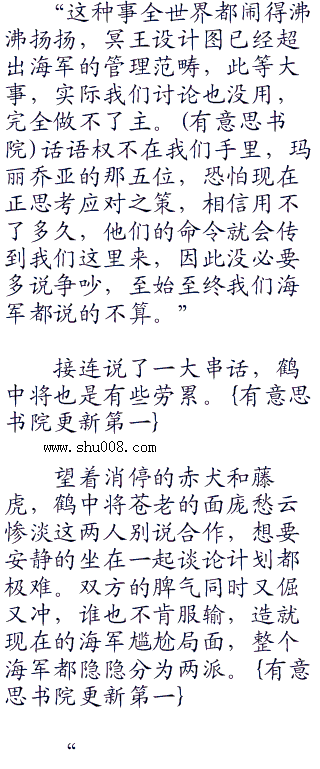 “这种事全世界都闹得沸
沸扬扬，冥王设计图已经超
出海军的管理范畴，此等大
事，实际我们讨论也没用，
完全做不了主。(有意思书
院)话语权不在我们手里，玛
丽乔亚的那五位，恐怕现在
正思考应对之策，相信用不
了多久，他们的命令就会传
到我们这里来，因此没必要
多说争吵，至始至终我们海
军都说的不算。”
接连说了一大串话，鹤
中将也是有些劳累。{有意思
书院更新第一}
www.shu008.com
望着消停的赤犬和藤
虎，鹤中将苍老的面庞愁云
惨淡这两人别说合作，想要
安静的坐在一起谈论计划都
极难。双方的脾气同时又倔
又冲，谁也不肯服输，造就
现在的海军尴尬局面，整个
海军都隐隐分为两派。{有意
思书院更新第一}
“